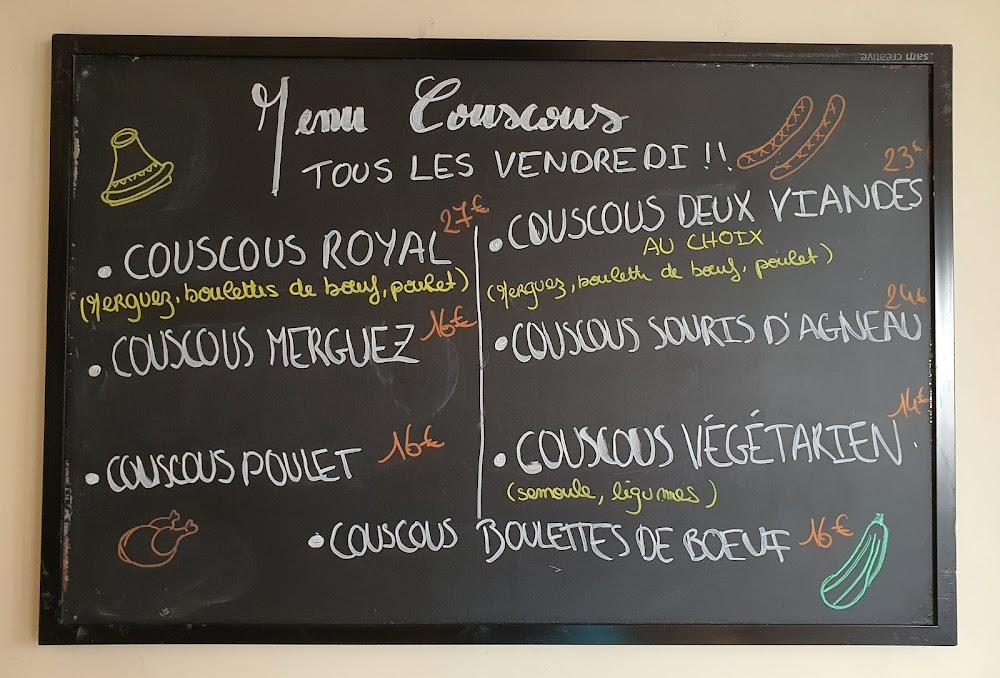 sam creative
Menu Couscous
TOUS LES VENDREDI !!
• COUSCOUS ROYAL 27€
(Merguez, boulettes de bœuf, poulet)
• COUSCOUS MERGUEZ 16€
• COUSCOUS POULET 16€
• COUSCOUS DEUX VIANDES 23€
AU CHOIX
(Merguez, boulette de bœuf, poulet)
• COUSCOUS SOURIS D'AGNEAU 24€
• COUSCOUS VÉGÉTARIEN 14€
(semoule, légumes)
• COUSCOUS BOULETTES DE BOEUF 16€